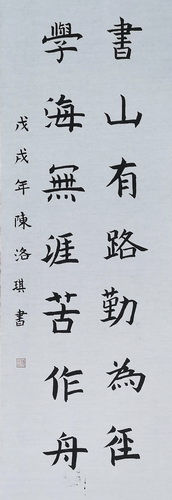 書山有路勤為徑
學海無涯苦作舟
戊戌年陳洛琪書